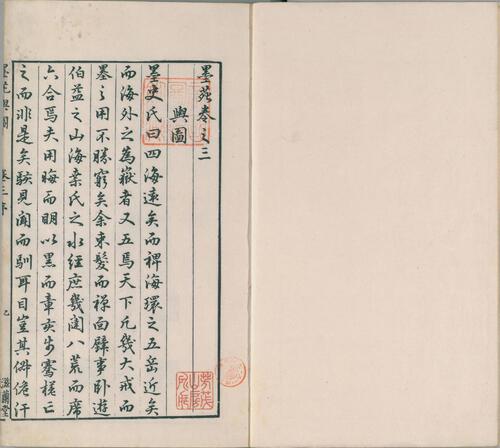 墨苑卷之三
輿圖
墨史氏曰四海遠矣而裨海環之五岳近矣
而海外之為嶽者又五焉天下凡幾大戒而
墨之用不勝窮矣余束髮而禪面壁事卧遊
伯益之山海桑氏之水經庶幾闔八荒而席
六合焉夫用晦而明以黑而章亥步騫槎亡
之而非是矣駭見聞而馴耳目豈其僻儋汗
墨苑輿圖
卷三序
滋蘭堂